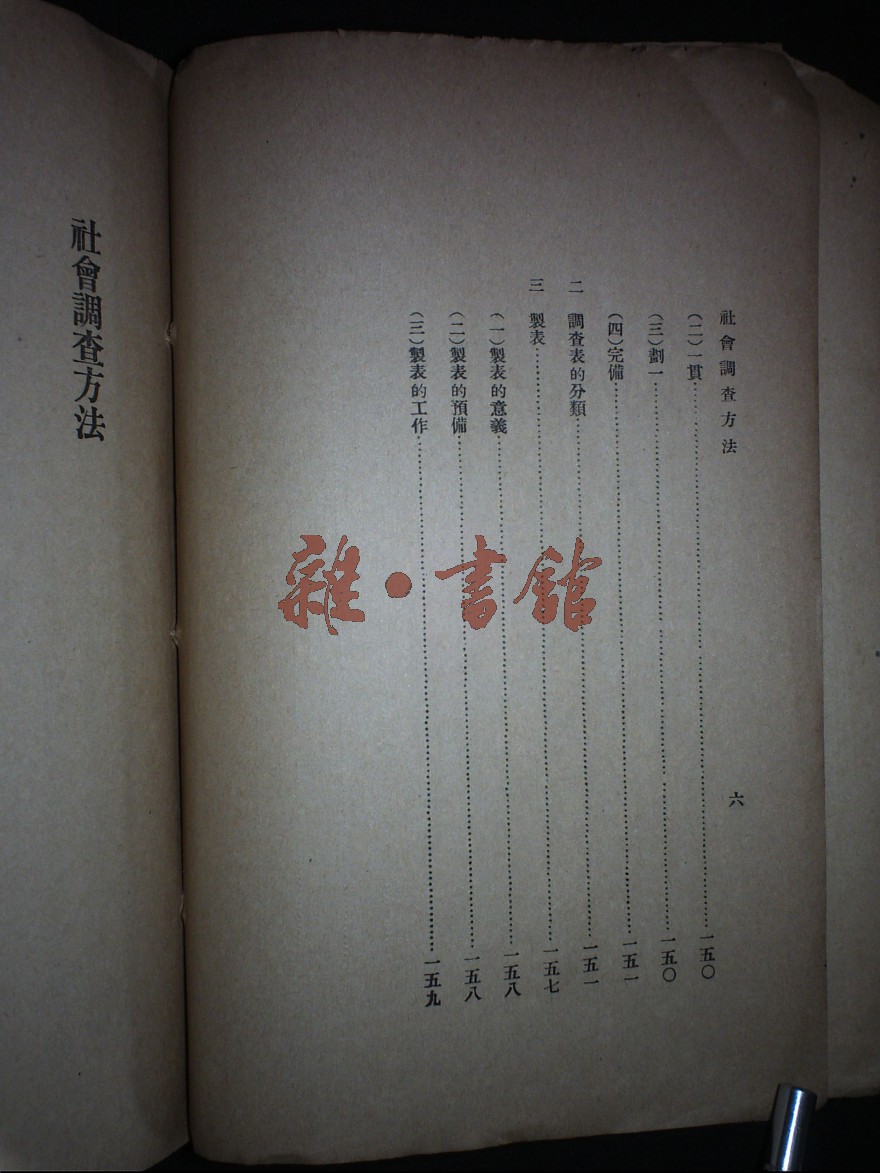 社會調查方法
六
(二)一貫……一五〇
(三)劃一……一五〇
(四)完備……一五一
二 調查表的分類……一五一
三 製表……一五七
(一)製表的意義……一五八
(二)製表的預備……一五八
(三)製表的工作……一五九
社會調查方法
雜·書館